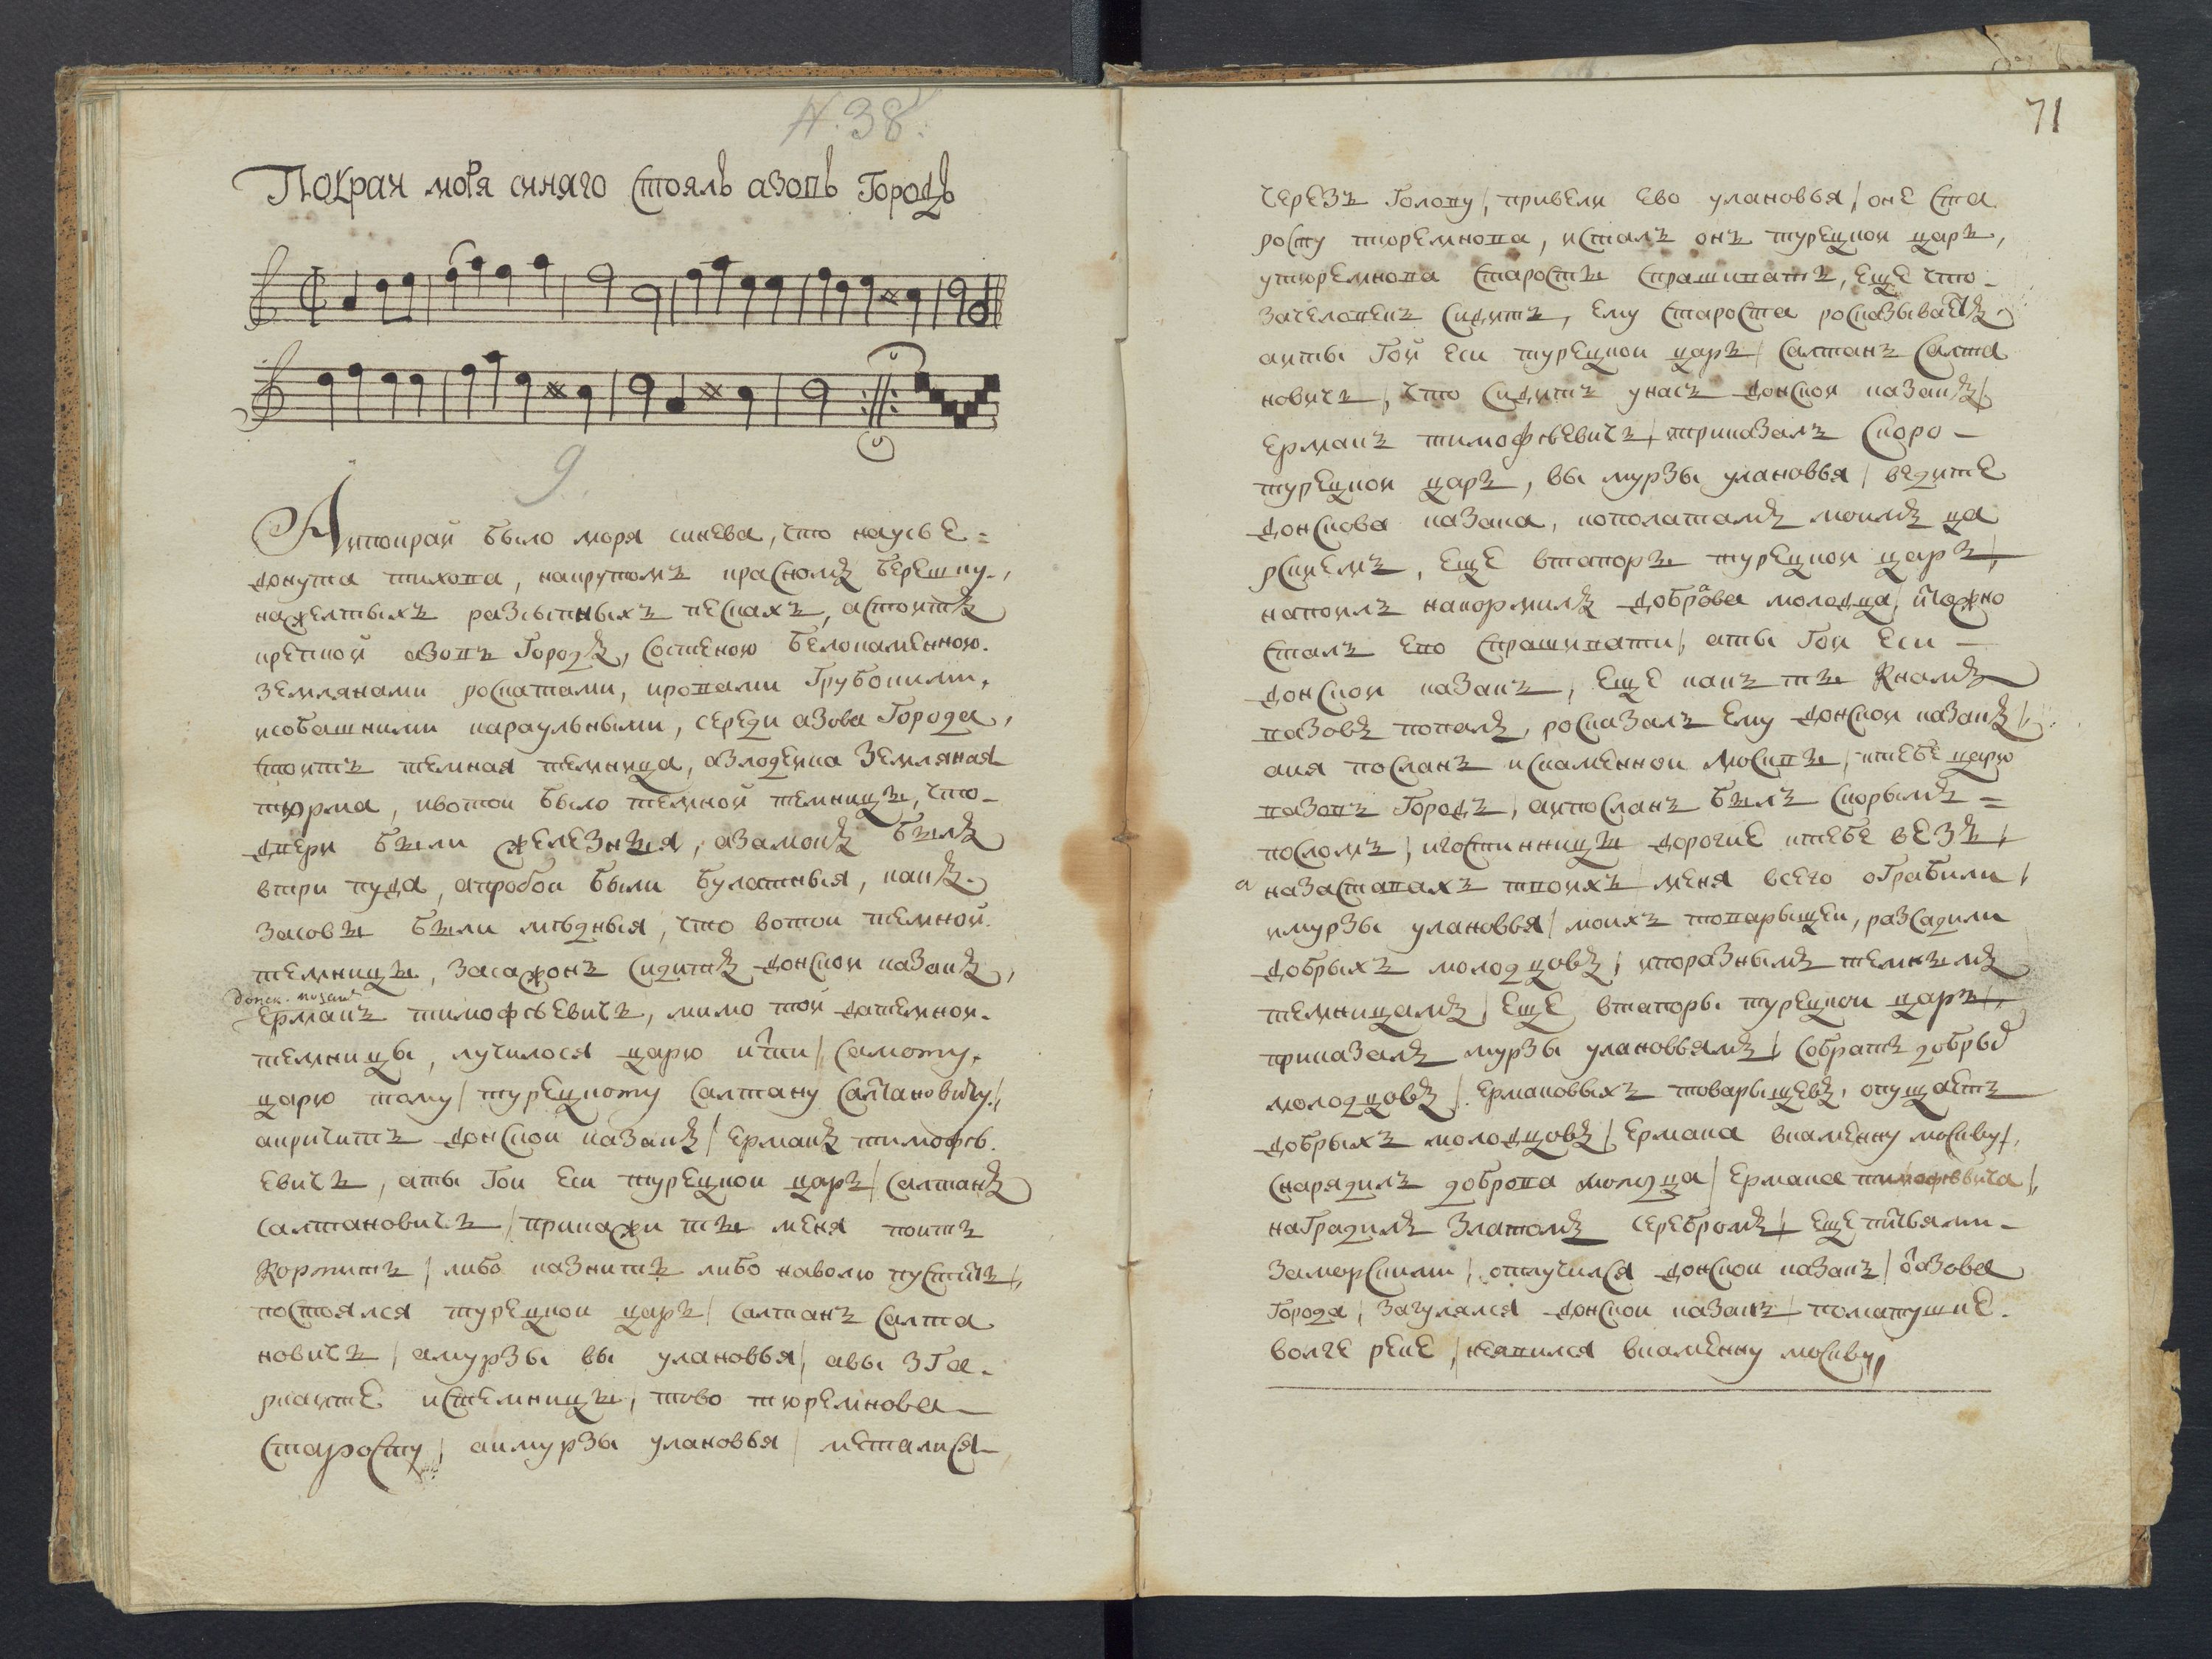 N. 38.
Покрай моря синяго Стоялъ азовъ Городъ
9
А ипокрай было моря синева, что наусьѣ =
дону та тихова, накрутомъ красномъ бережку,
нажелтыхъ разсыпныхъ пескахъ, астоитъ
крепкой азовъ Городъ, состеною белокаменною.
землянами роскатами, ировами Глубокими,
исобашними караульными, середи азова Города,
стоитъ темная темница, азлодейка земляная
тюрма, ивотои было темной темницы, что
двери были железныя, азамокъ былъ
втри пуда, апробои были булатныя, какъ
засовы были мѣдныя, что вотои темной
темницы, засажонъ сидитъ донской казакъ,
донск. казакъ
Ермакъ тимофѣевичъ, мимо той датемнои
темницы, лучилося царю итти, самому,
царю тому, турецкому Салтану Салтановичу,
акричитъ донскои казакъ, Ермакъ тимофѣ
евичъ, аты Гои еси турецкои царь, Салтанъ
салтановичъ, прикажи ты меня поить
кормить, либо казнить либо наволю пустить,
постоялся турецкои царь, салтанъ Салта
новичъ, амурзы вы улановья, авы зга
ркаите истемницы, тово тюремнова
старосту, аимурзы улановья, металися
71
черезъ Голову, привели ево улановья, оне ста
росту тюремнова, исталъ онъ турецкои царь,
утюремнова старосты спрашивать, еще что
зачеловекъ сидитъ, ему староста росказываетъ
аиты Гой еси турецкои царь, Салтанъ Салта
новичъ, что сидитъ унасъ донскои казакъ,
ермакъ тимофѣевичъ, приказалъ скоро
турецкои царь, вы мурзы улановья, ведите
донскова казака, кополатамъ моимъ ца
рскиемъ, еще втапоры турецкои царь,
напоилъ накормилъ доброва молодца, итожно
сталъ ево спрашивати, аты Гои еси
донскои казакъ, еще какъ ты кнамъ
вазовъ попалъ, росказалъ ему донскои казакъ,
ая посланъ искаменнои москвы, ктебе царю
вазовъ Городъ, аипосланъ былъ скорымъ =
посломъ, игостинницы дорогие ктебе везъ,
а назаставахъ твоихъ меня всего ограбили,
имурзы улановья, моихъ товарыщеи, разсадили
добрыхъ молодцовъ, ипоразнымъ темнымъ
темницамъ, еще втапоры турецкои царь,
приказалъ мурзы улановьямъ, собрать добрыхъ
молодцовъ, Ермаковыхъ товарыщевъ, опущаетъ
добрыхъ молодцовъ, Ермака вкаменну москву,
снарядилъ доброва молодца, Ермака тимофѣевича,
наградилъ златомъ серебромъ, еще питьями
заморскими, отлучился донскои казакъ, отазова
Города, загулялся донскои казакъ, поматушке
волге реке, неявился вкаменну москву,